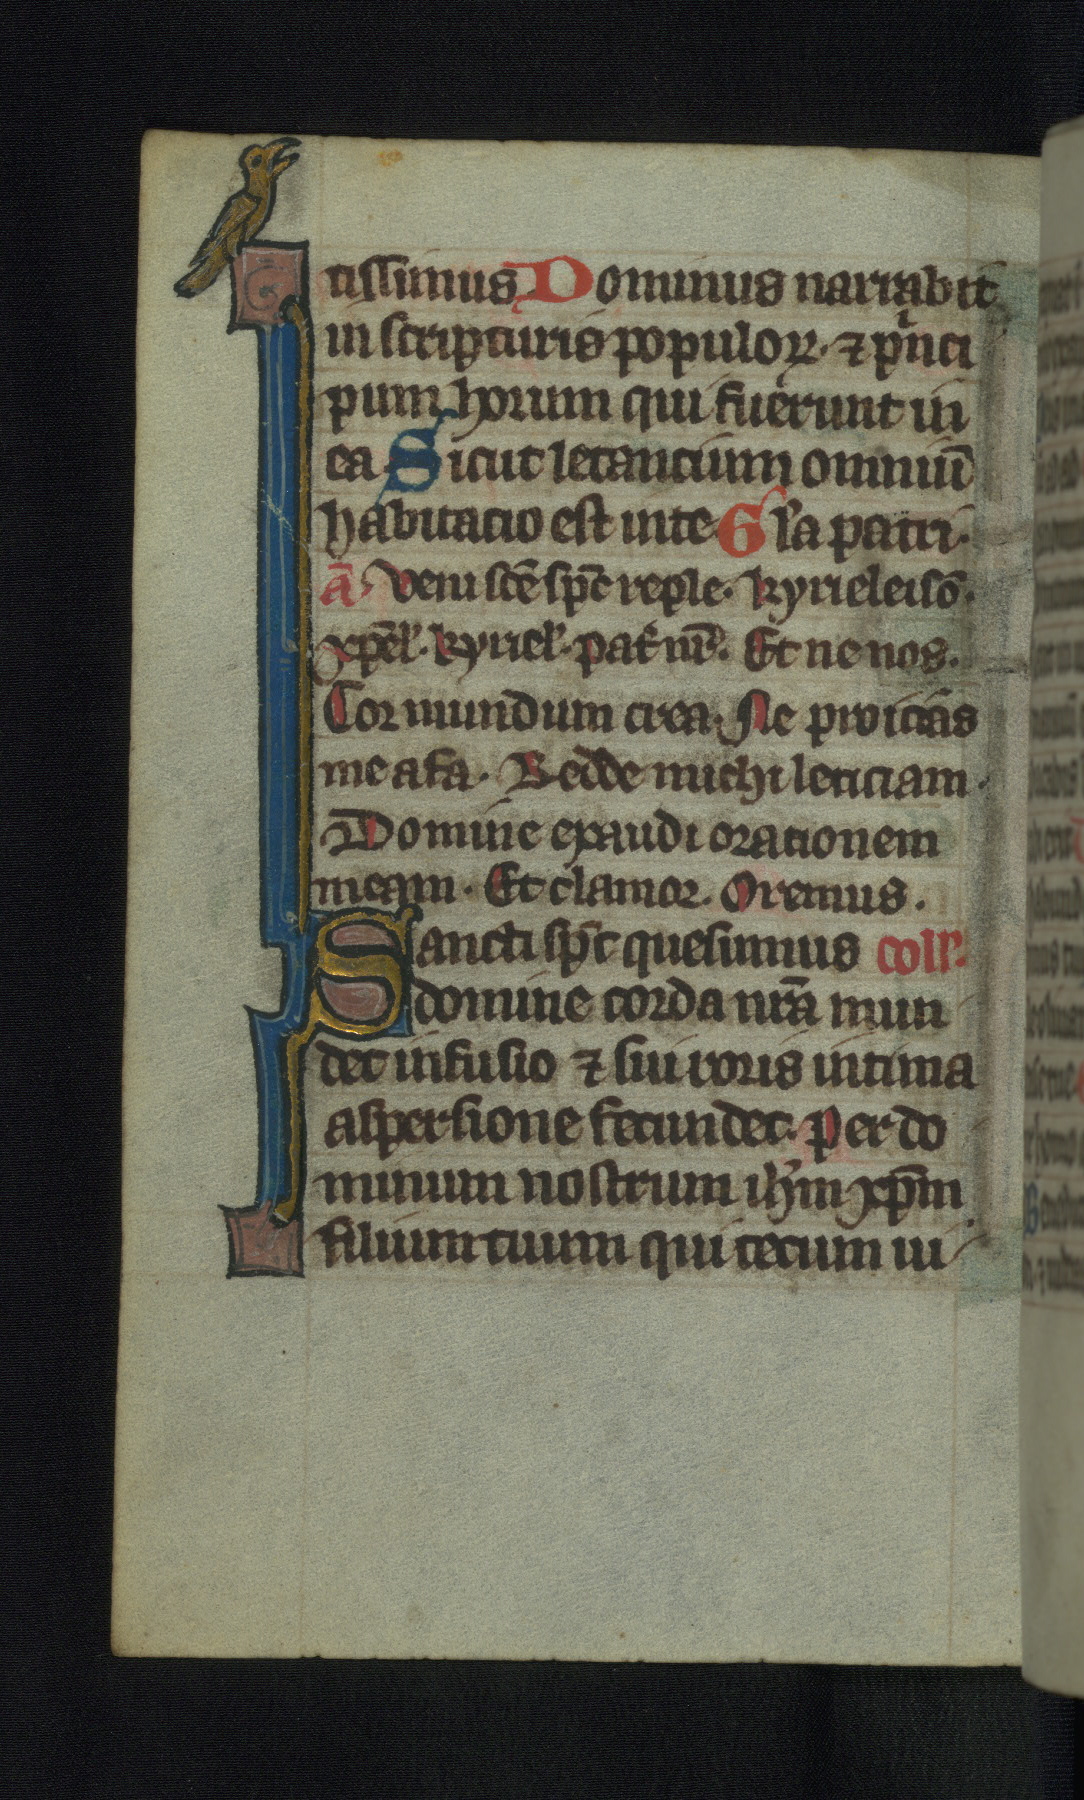 tissimus Dominus narrabit
in scripturis populoꝝ. ⁊ pͥnci
pum horum qui fuerunt in
ea Sicut letancium omniū
habitacio est in te Gl'a patri.
ā. Veni sc̄e sp̄c reple. kyrieleisō.
xp̄el'. kyriel'. pat̄ nr̄. Et ne nos.
Cor mundum crea. Ne proicias
me a fa. Redde michi leticiam.
Domine exaudi orationem
meam. Et clamor. Oremus.
Sancti sp̄c quesumus coll'.
domine corda nr̄a mun
det infusio ⁊ sui roris intima
aspersione fecundet. Per do
minum nostrum ih̄m xp̄m
filium tuum qui tecum ui